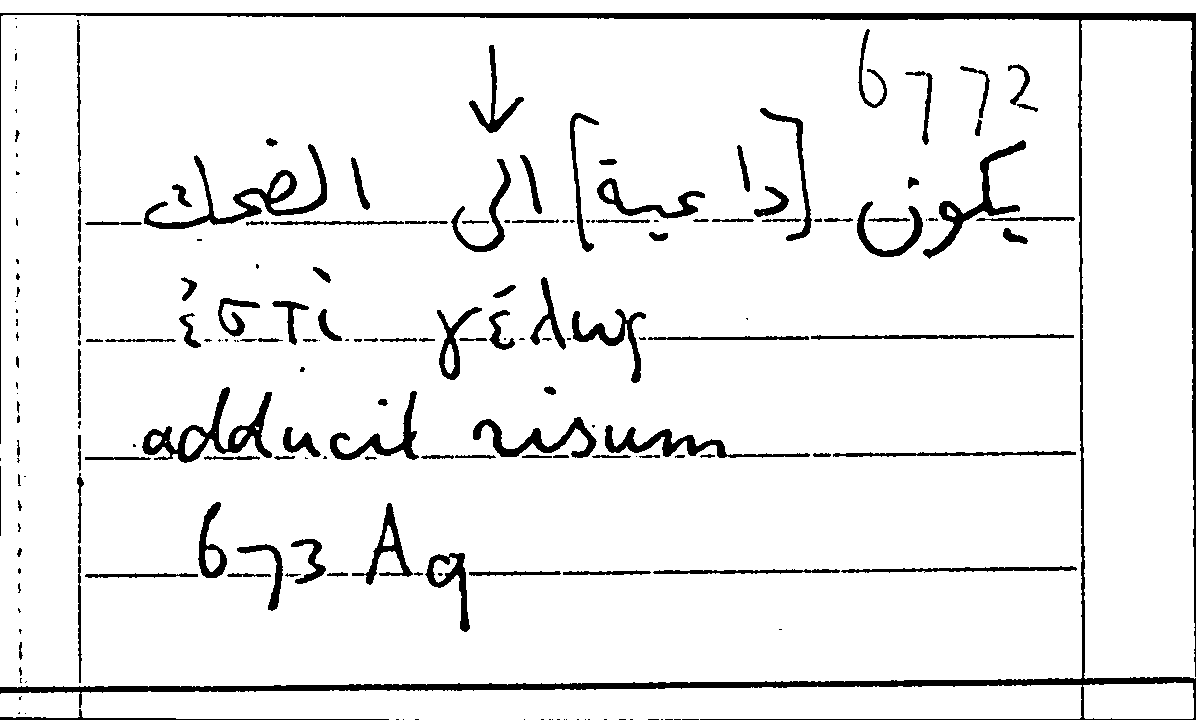 6772
يكون [داعية] الى الضحك
ἐστὶ γέλως
adducit risum
673 Aq